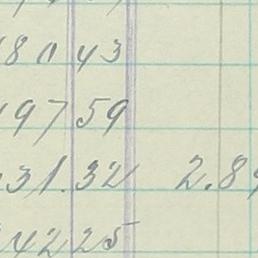 80 43
97 59
31.32 2.8
42 25